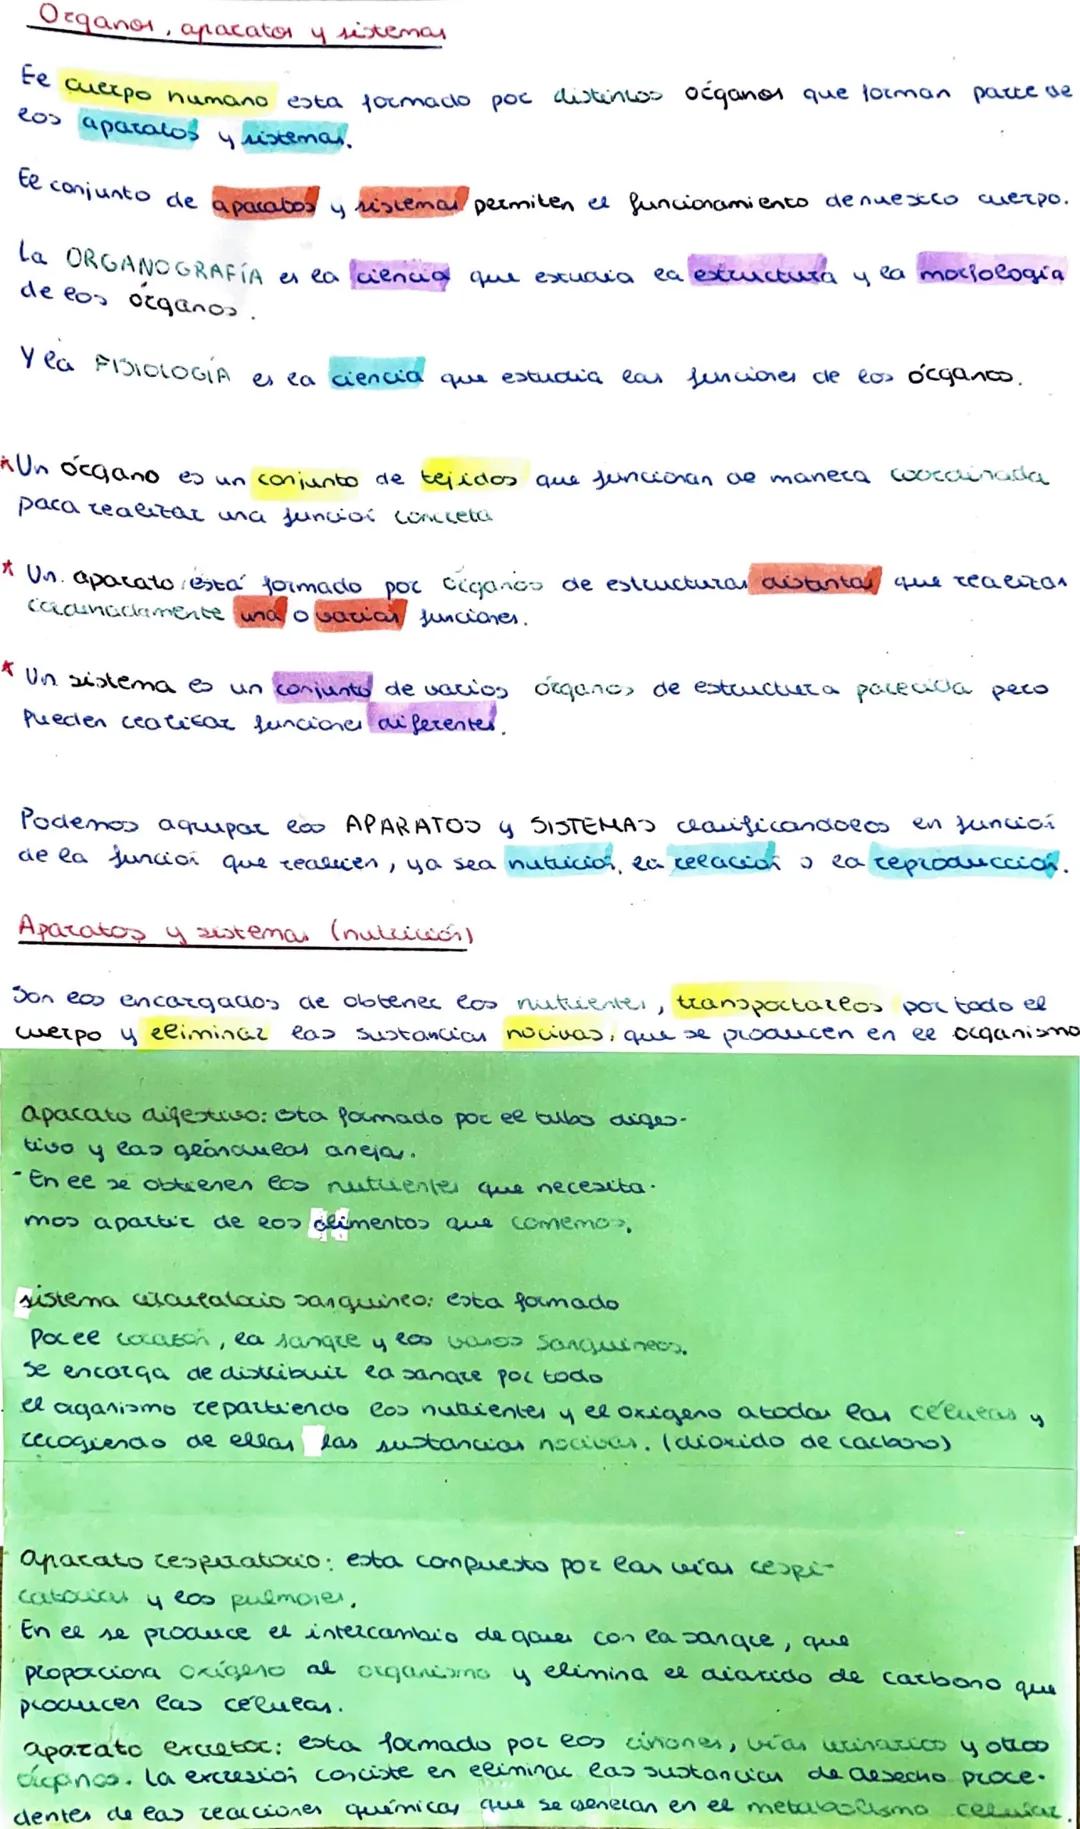 Organos, aparatos y sistemas
El cuerpo humano esta formado por distintos órganos que forman parte de
los aparatos y sistemas.
El conjunto de aparatos y sistemas permiten el funcionamiento de nuestro cuerpo.
La ORGANOGRAFÍA es la ciencia que estudia la estructura y la morfología
de los órganos.
Y la FISIOLOGÍA es la ciencia que estudia las funciones de los órganos.
* Un órgano es un conjunto de tejidos que funcionan de manera coordinada
para realizar una función concreta
* Un aparato está formado por órganos de estructuras distintas que realizan
cordinadamente una o varias funciones.
* Un sistema es un conjunto de varios órganos de estructura parecida pero
pueden realizar funciones diferentes.
Podemos agrupar los APARATOS y SISTEMAS clasificandolos en función
de la función que realicen, ya sea nutrición, la relación o la reproducción.
Aparatos y sistemas (nutrición)
Son los encargados de obtener los nutrientes, transportarlos por todo el
cuerpo y eliminar las sustancias nocivas, que se producen en el organismo
aparato digestivo: esta formado por el tubo diges-
tivo y las glándulas anejas.
- En el se obtienen los nutrientes que necesita-
mos apartir de los alimentos que comemos.
sistema circulatorio sanguineo: esta formado
por el corazón, la sangre y los vasos sanguineos.
Se encarga de distribuir la sangre por todo
el organismo repartiendo los nutrientes y el oxigeno a todas las células y
recogiendo de ellas las sustancias nocivas. (dioxido de carbono)
aparato respiratorio: esta compuesto por las vías respi-
ratorias y los pulmones.
En el se produce el intercambio de gases con la sangre, que
proporciona oxígeno al organismo y elimina el dioxido de carbono que
producen las células.
aparato excretor: esta formado por los riñones, vías urinarias y otros
órganos. La excresión consiste en eliminar las sustancias de desecho proce-
dentes de las reacciones químicas que se generan en el metabolismo celular.